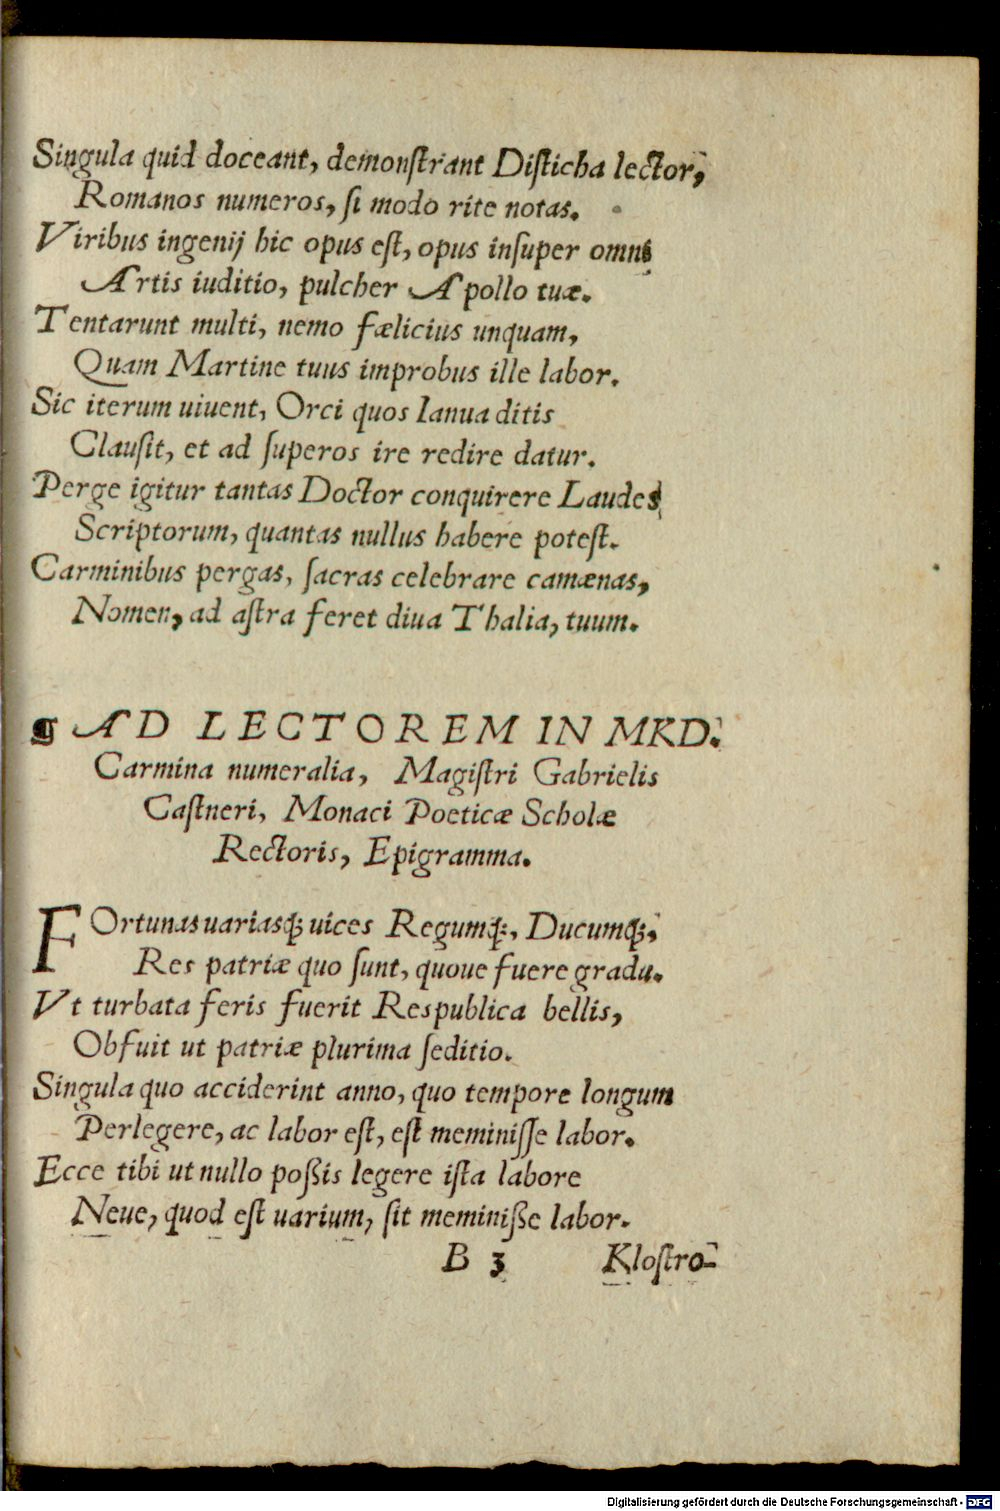 Singula quid doceant, demonſtrant Diſticha lector,
Romanos numeros, ſi modo rite notas.
Viribus ingenij hic opus eſt, opus inſuper omni
Artis iuditio, pulcher Apollo tuæ.
Tentarunt multi, nemo fælicius unquam,
Quam Martine tuus improbus ille labor.
Sic iterum uiuent, Orci quos Ianua ditis
Clauſit, et ad ſuperos ire redire datur.
Perge igitur tantas Doctor conquirere Laudes
Scriptorum, quantas nullus habere poteſt.
Carminibus pergas, ſacras celebrare camænas,
Nomen, ad aſtra feret diua Thalia, tuum.
¶ AD LECTOREM IN MKD.
Carmina numeralia, Magiſtri Gabrielis
Caſtneri, Monaci Poeticæ Scholæ
Rectoris, Epigramma.
FOrtunas uariasq́; uices Regumq́;, Ducumq́;,
Res patriæ quo ſunt, quoue fuere gradu.
Vt turbata feris fuerit Respublica bellis,
Obfuit ut patriæ plurima ſeditio.
Singula quo acciderint anno, quo tempore longum
Perlegere, ac labor eſt, eſt meminiſſe labor.
Ecce tibi ut nullo poßis legere iſta labore
Neue, quod eſt uarium, ſit meminiße labor.
B 3 Kloſtro-
Digitalisierung gefördert durch die Deutsche Forschungsgemeinschaft - DFG